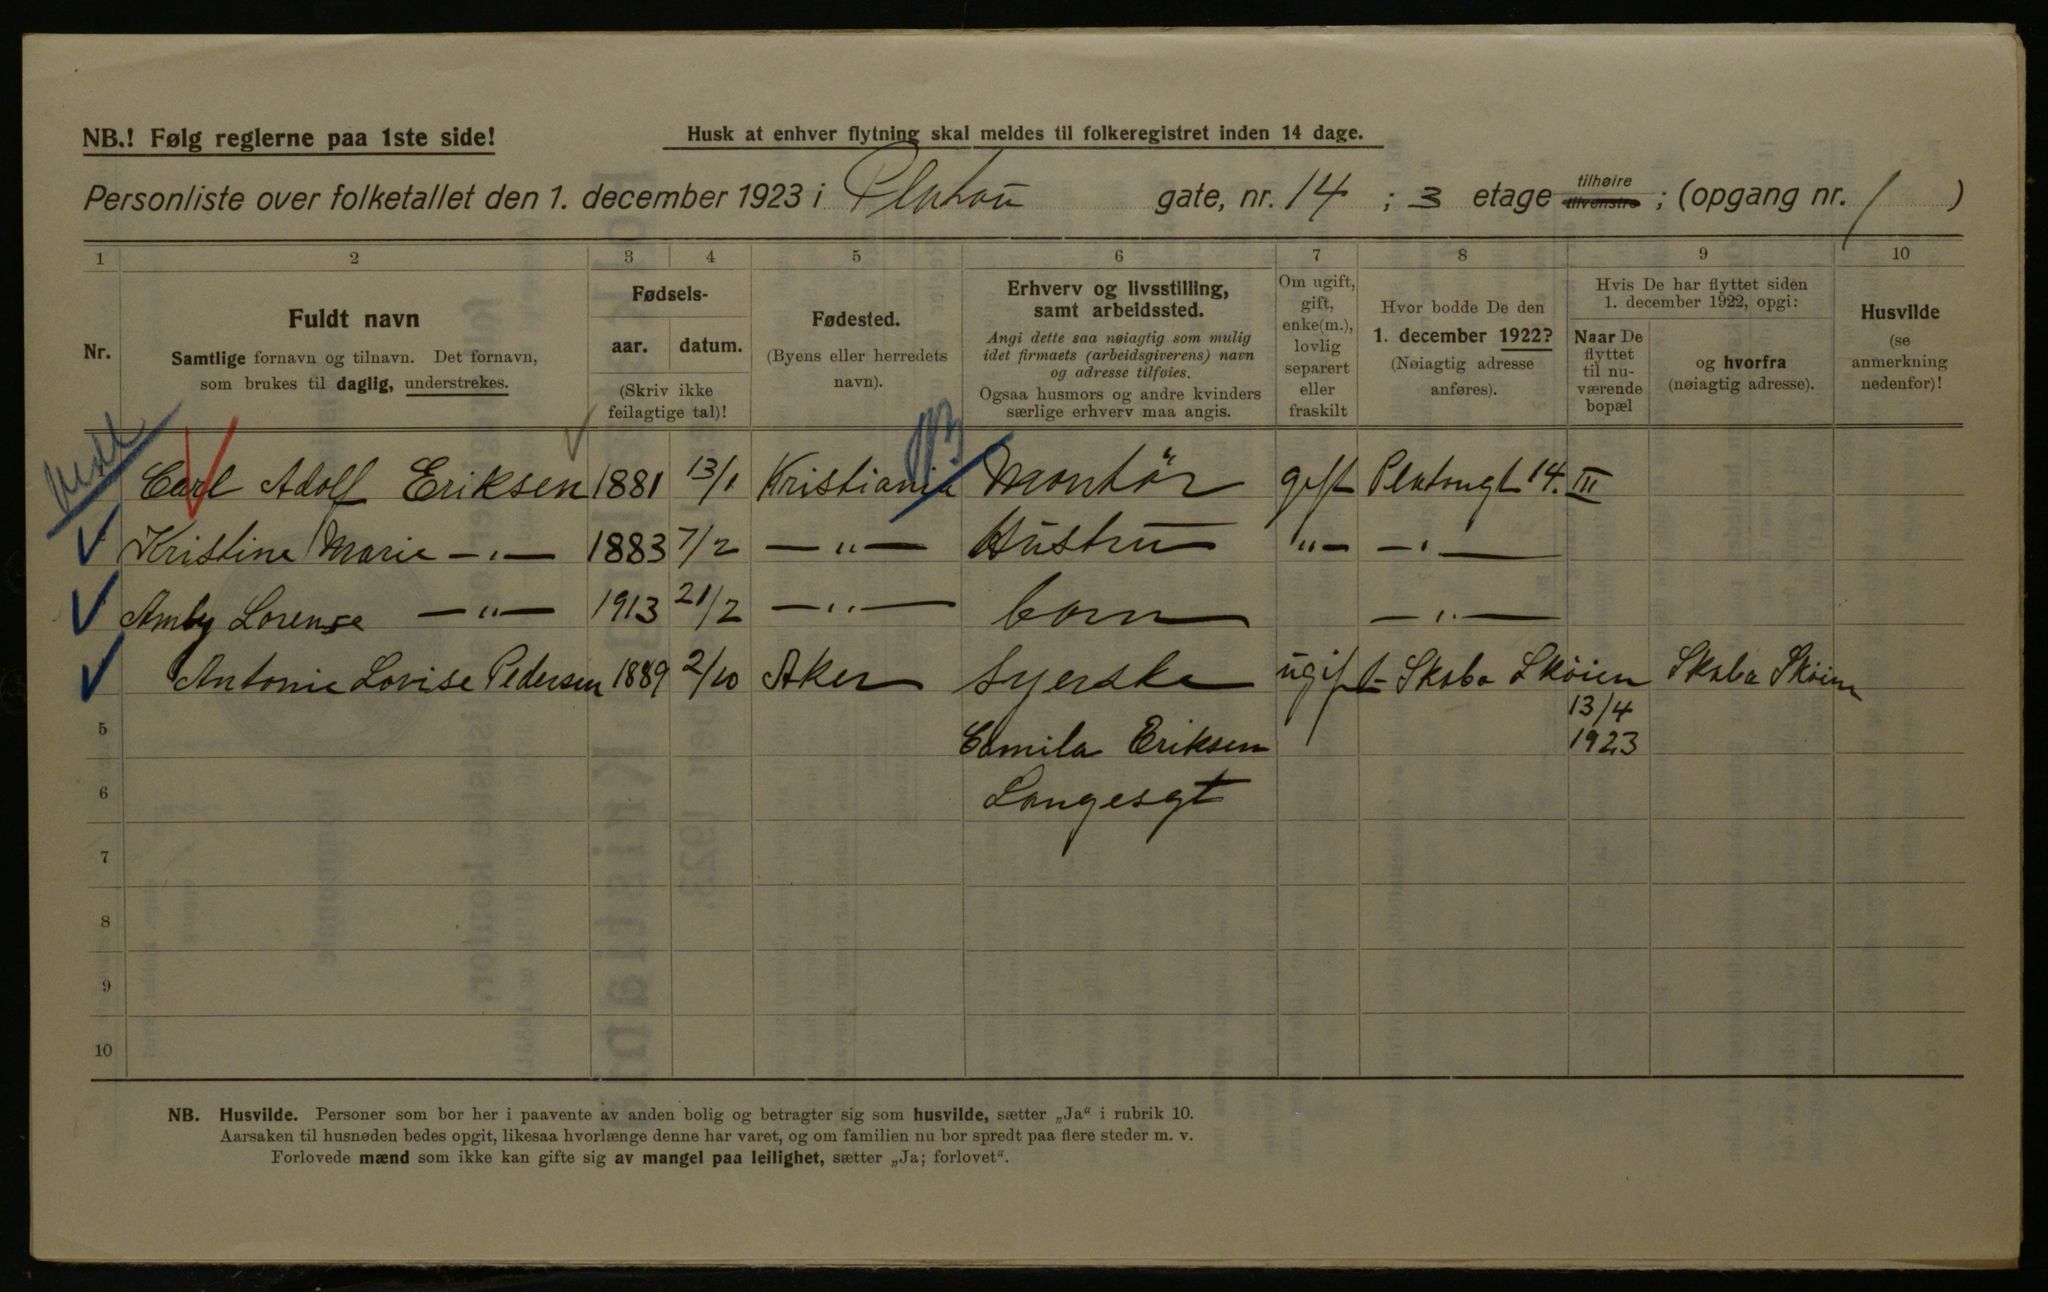 NB.! Følg reglerne paa 1ste side!
Husk at enhver flytning skal meldes til folkeregistret inden 14 dage.
Personliste over folketallet den 1. december 1923 i Platou gate, nr. 14 ; 3 etage tilhøire tilvenstre ; (opgang nr. 1 )
1 2 3 4 5 6 7 8 9 10
Nr.
Fuldt navn
Samtlige fornavn og tilnavn. Det fornavn,
som brukes til daglig, understrekes.
Fødsels-
aar. datum.
(Skriv ikke
feilagtige tal)!
Fødested.
(Byens eller herredets
navn).
Erhverv og livsstilling,
samt arbeidssted.
Angi dette saa nøiagtig som mulig
idet firmaets (arbeidsgiverens) navn
og adresse tilføies.
Ogsaa husmors og andre kvinders
særlige erhverv maa angis.
Om ugift,
gift,
enke(m.),
lovlig
separert
eller
fraskilt
Hvor bodde De den
1. december 1922?
(Nøiagtig adresse
anføres).
Hvis De har flyttet siden
1. december 1922, opgi:
Naar De
flyttet
til nu-
værende
bopæl
og hvorfra
(nøiagtig adresse).
Husvilde
(se
anmerkning
nedenfor)!
Carl Adolf Eriksen 1881 13/1 Kristiania Montør gift Platougt 14. III
Kristine Marie —"— 1883 7/2 —"— Hustru "— —"—
Lorense —"— 1913 21/2 —"— barn —"—
Antonie Lovise Pedersen 1889 2/10 Aker Syerske ugift Skabo Skøien Skabo Skøien
13/4
5 Camila Eriksen 1923
6 Langesgt
7
8
9
10
NB. Husvilde. Personer som bor her i paavente av anden bolig og betragter sig som husvilde, sætter „Ja“ i rubrik 10.
Aarsaken til husnøden bedes opgit, likesaa hvorlænge denne har varet, og om familien nu bor spredt paa flere steder m. v.
Forlovede mænd som ikke kan gifte sig av mangel paa leilighet, sætter „Ja; forlovet“.